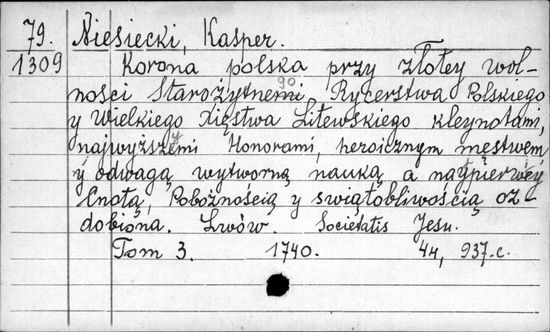 79. Niesiecki, Kasper.
1309 Korona polska przy złotey wol-
ności Starożytnemi Rycerstwa Polskiego
y Wielkiego Xięstwa Litewskiego kleynotami,
najwyższemi Honorami, heroicznym męstwem
y odwagą wytworną nauką a naypierwey
Cnotą, Pobożnością y swiątobliwością oz-
dobiona. Lwów. Societatis Jesu.
Tom 3. 1740. 4t, 937.c.